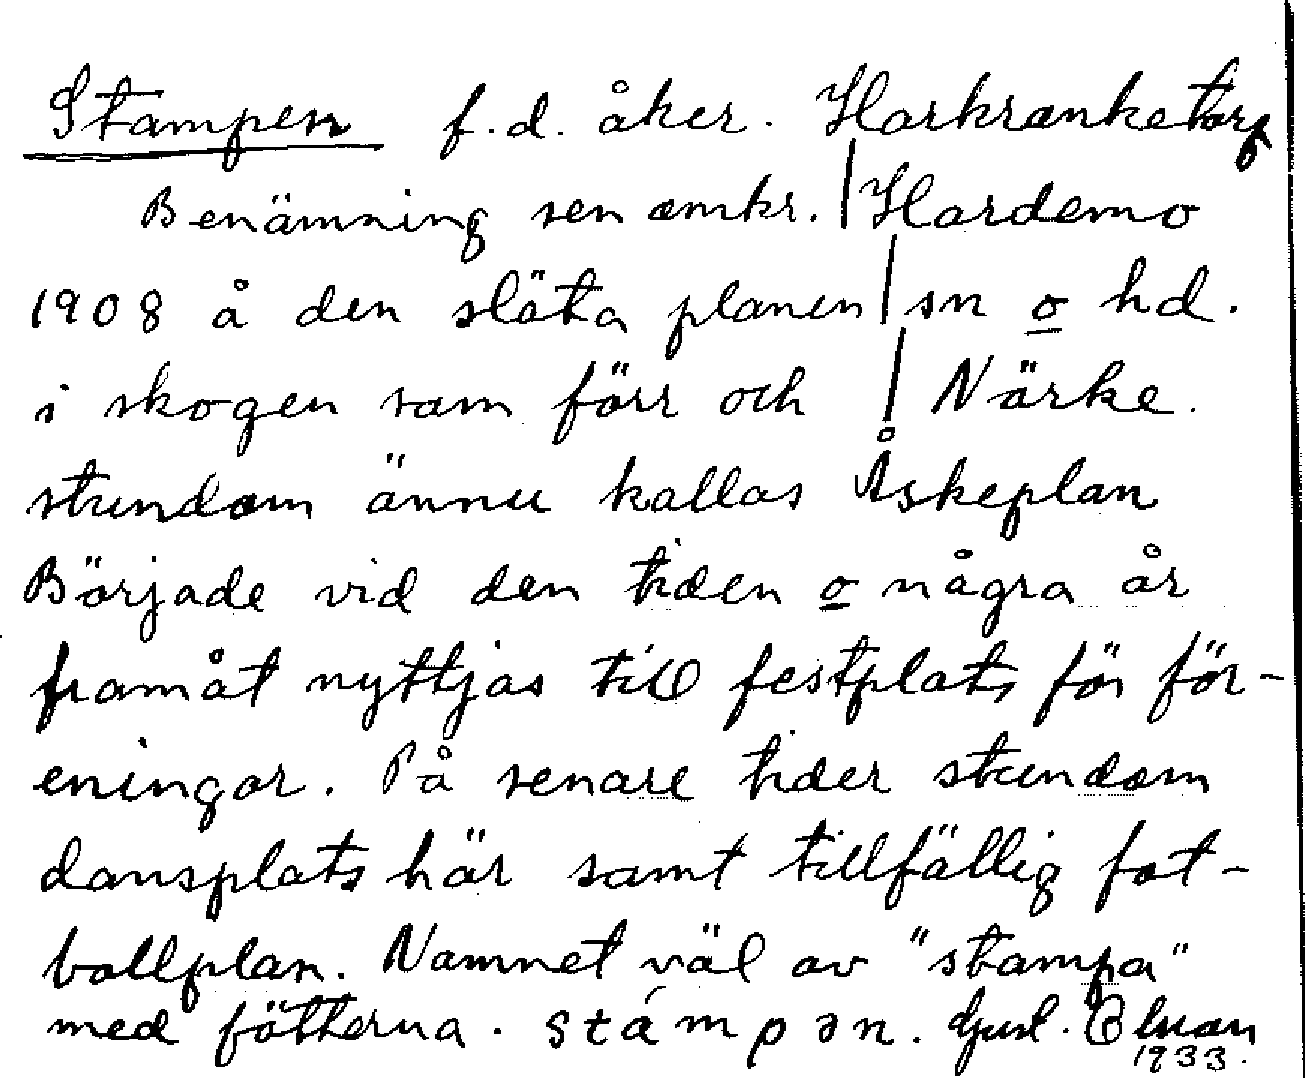 Stampen f.d. åker. Harkranketorp
Benämning sen omkr. | Hardemo
1908 å den släta planen | sn o hd.
i skogen som förr och | Närke.
stundom ännu kallas Åskeplan
Började vid den tiden o några år
framåt nyttjas till festplats för för-
eningar. På senare tider stundom
dansplats här samt tillfällig fot-
bollplan. Namnet väl av "stampa"
med fötterna. stámpən. Gust.
1933.